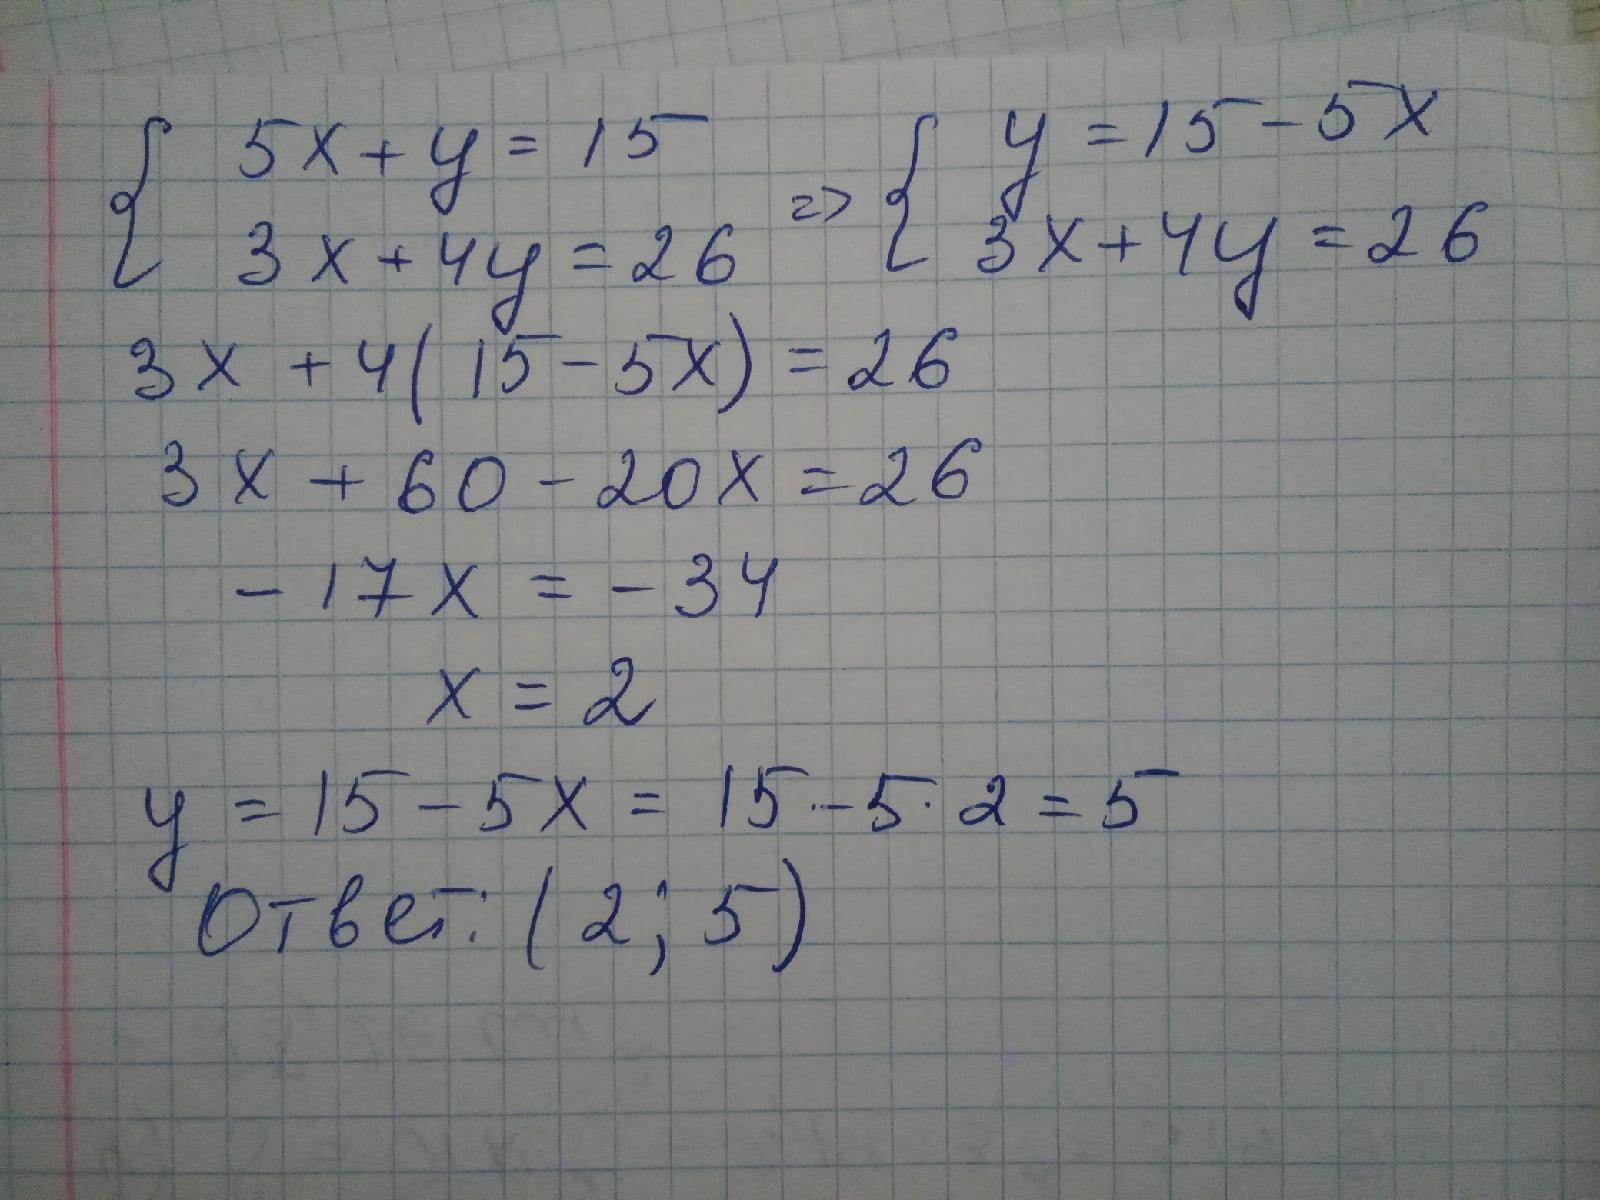 { 5x + y = 15 => { y = 15 - 5x
3x + 4y = 26 3x + 4y = 26
3x + 4( 15 - 5x) = 26
3x + 60 - 20x = 26
- 17x = - 34
x = 2
y = 15 - 5x = 15 - 5 · 2 = 5
Ответ: ( 2; 5)